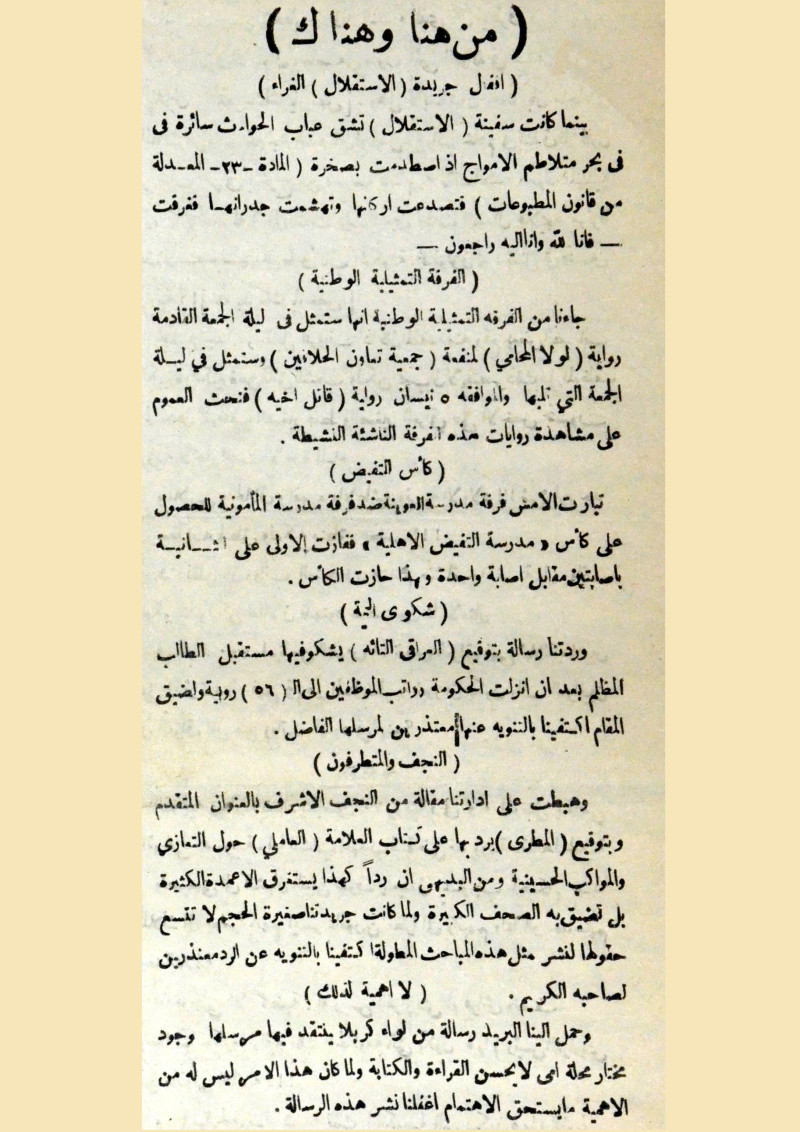 ( من هنا وهناك )
( اقفال جريدة ( الاستقلال ) الغراء )
بينما كانت سفينة ( الاستقلال ) تشق عباب الحوادث سائرة فى
فى بحر متلاطم الامواج اذ اصطدمت بصخرة ( المادة -٢٣- المعدلة
من قانون المطبوعات ) فتصدعت اركانها وتهشمت جدرانها فغرقت
— فانا لله وانا اليه راجعون —
( الفرقة التمثيلية الوطنية )
جاءنا من الفرقه التمثيلية الوطنية انها ستمثل فى ليلة الجمعة القادمة
رواية ( لولا المحامي ) لمنفعة ( جمعية تعاون الحلاقين ) وستمثل في ليلة
الجمعة التي تليها والموافقه ٥ نيسان رواية ( قاتل اخيه ) فنحث العموم
على مشاهدة روايات هذه الفرقة الناشئة النشيطة .
( كأس التفيض )
تبارت الامس فرقة مدرسة العوينة ضد فرقة مدرسة المأمونية للحصول
على كأس « مدرسة التفيض الاهلية » ففازت الاولى على الثانية
باصابتين مقابل اصابة واحدة وبهذا حازت الكأس .
( شكوى الية )
وردتنا رسالة بتوقيع ( العراقى التائه ) يشكو فيها مستقبل الطالب
المظلم بعد ان انزلت الحكومة رواتب الموظفين الى الـ ( ٥٦ ) روبية ولضيق
المقام اكتفينا بالتنويه عنها معتذرين لمرسلها الفاضل .
( النجف والمتطرفون )
وهبطت على ادارتنا مقالة من النجف الاشرف بالعنوان المتقدم
وبتوقيع ( المطرى ) يرد بها على كتاب العلامة ( العاملي ) حول التعازي
والمواكب الحسينية ومن البديهى ان رداً كهذا يستغرق الاعمدة الكثيرة
بل تضيق به الصحف الكبيرة ولما كانت جريدتنا صغيرة الحجم لا تتسع
حقولها لنشر مثل هذه المباحث المطولة اكتفينا بالتنويه عن الرد معتذرين
لصاحبه الكريم . ( لا اهمية لذلك )
وحمل الينا البريد رسالة من لواء كربلا ينتقد فيها مرسلها وجود
مختار محلة امى لا يحسن القراءة والكتابة ولما كان هذا الامر ليس له من
الاهمية ما يستحق الاهتمام اغفلنا نشر هذه الرسالة .